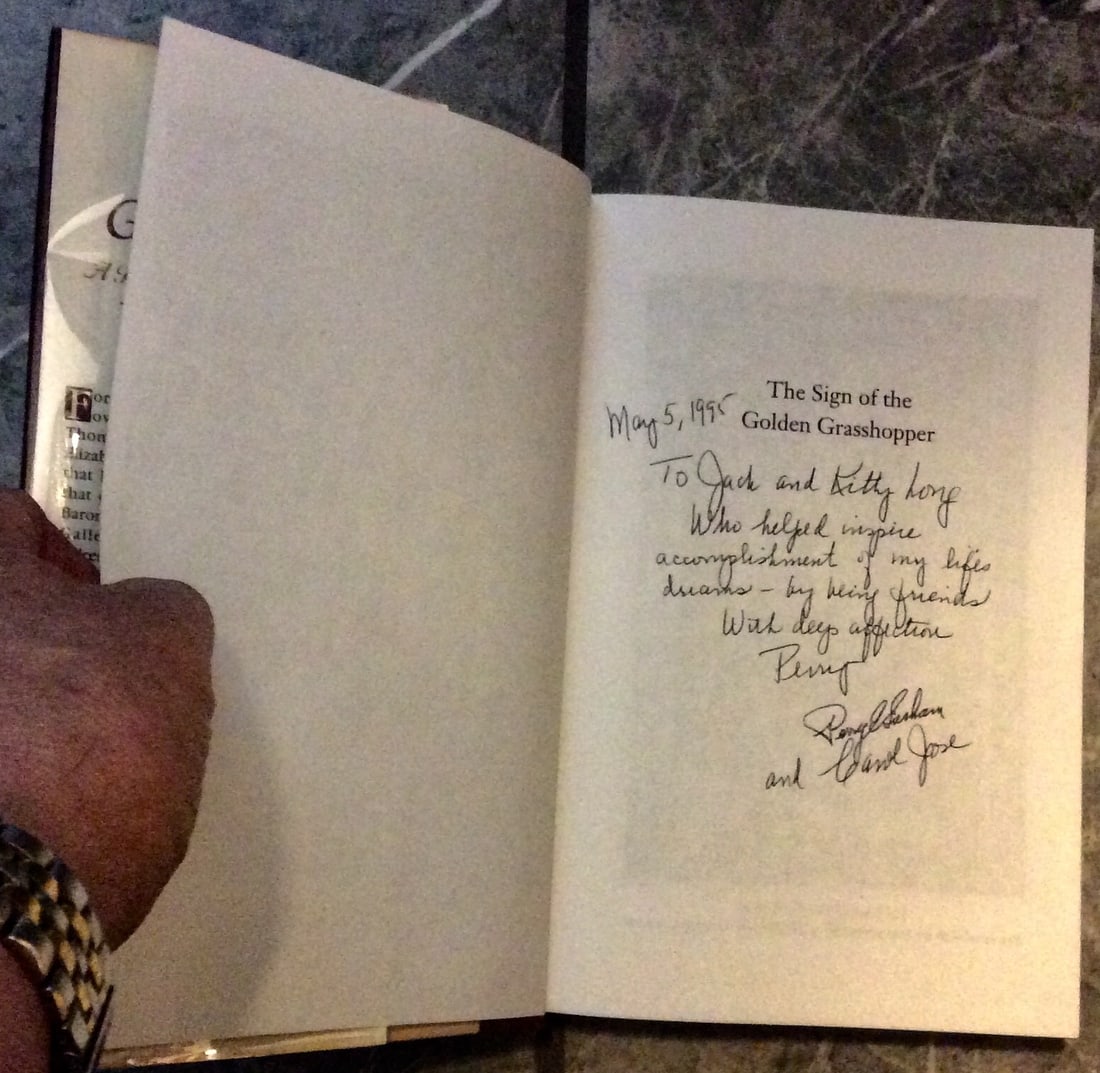 G
A
For
ow
Thom
Elizab
that
that
Baron
The Sign of the
Golden Grasshopper
May 5, 1995
To Jack and Kitty Long
Who helped inspire
accomplishment of my lifes
dreams - by being friends
With deep affection
Perry
and Carol Jose